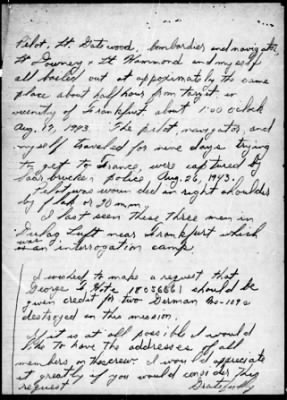 Pilot, Lt. Datwood, bombardier and navigator,
Lt Downery & Lt Hammond and myself
all bailed out at approximately the same
place about half hour from target in
vecenity of Frankfurt, about 1:00 oclock
Aug. 17, 1943. The pilot, navigator, and
myself traveled for nine days trying
to get to France, were captured by
Saarbrucken police, Aug. 26, 1943.
Pilot was wounded in right shoulder
by flak or 20 mm.
I last seen these three men in
Dulag Luft near Frankfurt which
was an interrogation camp.
I wished to make a request that
George G. Hote 18056861 should be
given credit for two German Me-109s
destroyed on this mission.
If it is at all possible I would
like to have the addresses of all
members on the crew. I would appreciate
it greatly if you would consider this
request
Gratefully